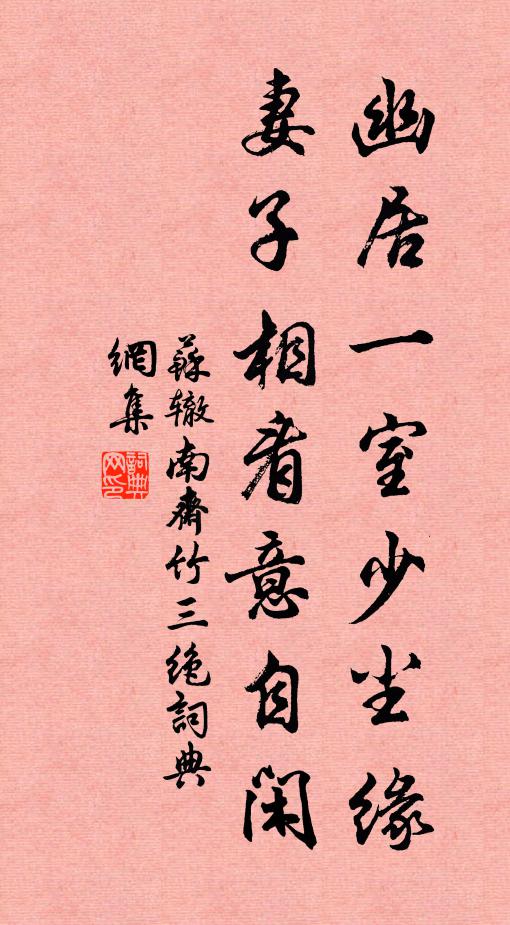 幽居一室少尘缘
妻子相看意自闲
蘇辙南齋竹三绝詞典
網集
詞典网印